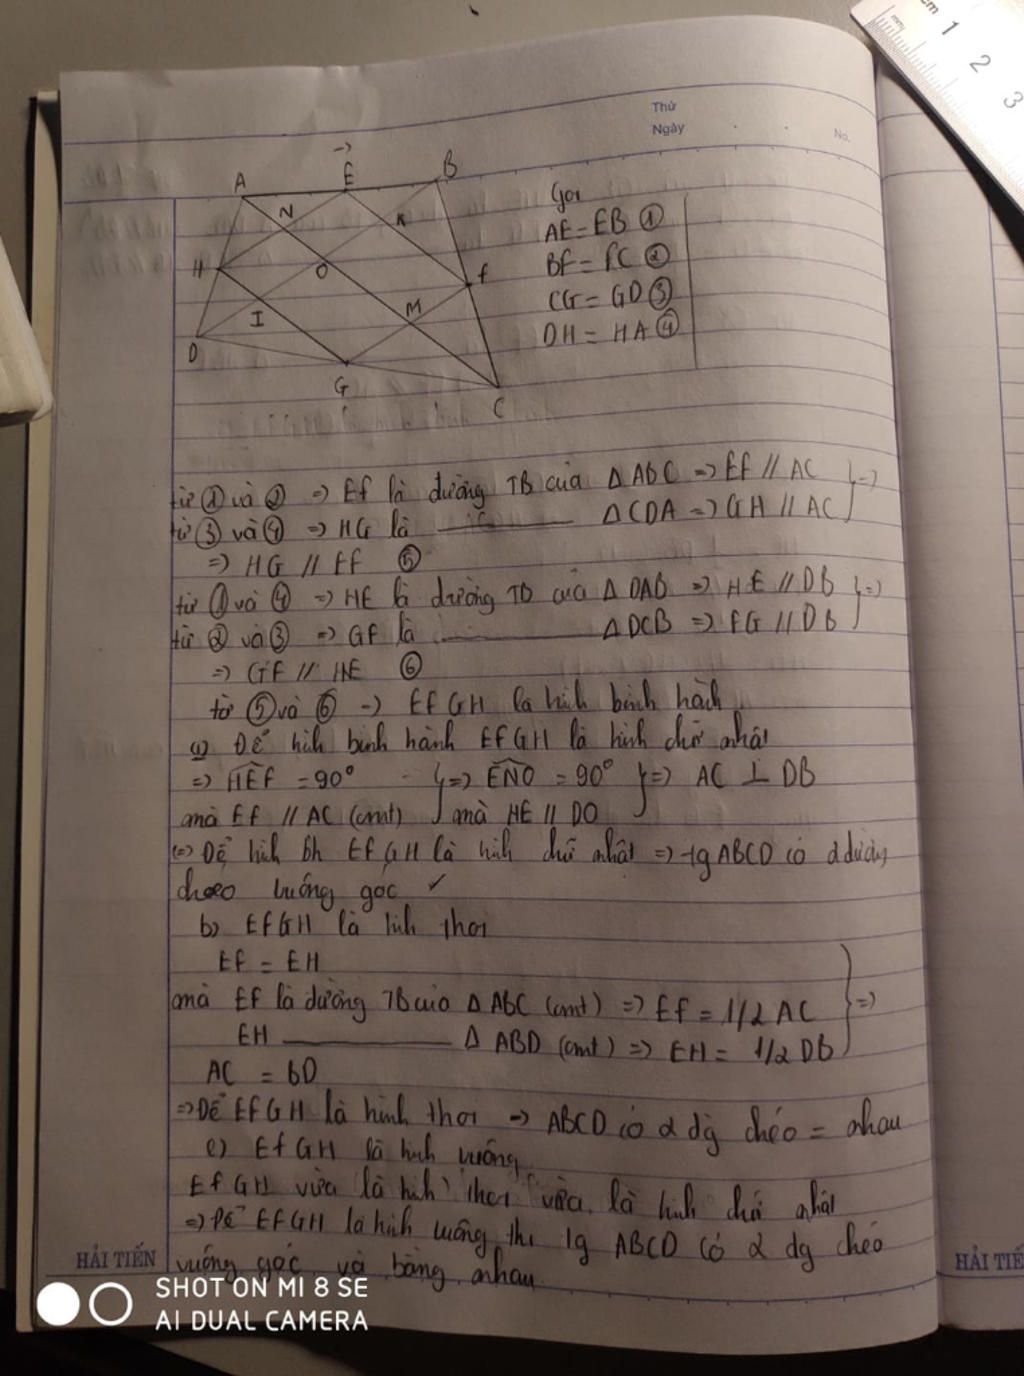 cm 1 2 3
mm
Thứ
Ngày
No.
->
A E B
N K
H O F
I M
D G C
Gọi
AE = EB ①
BF = FC ②
CG = GD ③
DH = HA ④
từ ① và ② => EF là đường TB của Δ ABC => EF // AC } =>
từ ③ và ④ => HG là ——— Δ CDA => GH // AC
=> HG // EF ⑤
từ ① và ④ => HE là đường TB của Δ DAB => HE // DB } =>
từ ② và ③ => GF là ——— Δ DCB => FG // DB
=> GF // HE ⑥
từ ⑤ và ⑥ -> EFGH là hình bình hành
a) Để hình bình hành EFGH là hình chữ nhật
=> HEF = 90° } => ENO = 90° } => AC ⊥ DB
mà EF // AC (cmt) mà HE // DO
(=) Để hình bh EFGH là hình chữ nhật => tg ABCD có 2 đường
chéo vuông góc ✓
b) EFGH là hình thoi
EF = EH
mà EF là đường TB của Δ ABC (cmt) => EF = 1/2 AC } =>
EH ——— Δ ABD (cmt) => EH = 1/2 DB
AC = BD
=> Để EFGH là hình thoi -> ABCD có 2 đg chéo = nhau
c) EFGH là hình vuông
EFGH vừa là hình thoi vừa là hình chữ nhật
=> Để EFGH là hình vuông thì tg ABCD có 2 đg chéo
vuông góc và bằng nhau
HẢI TIẾN
HẢI TIẾ
SHOT ON MI 8 SE
AI DUAL CAMERA